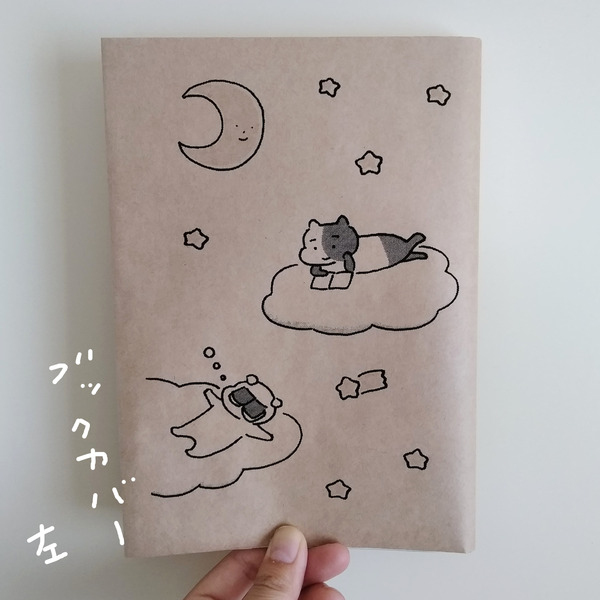 ブックカバー
左